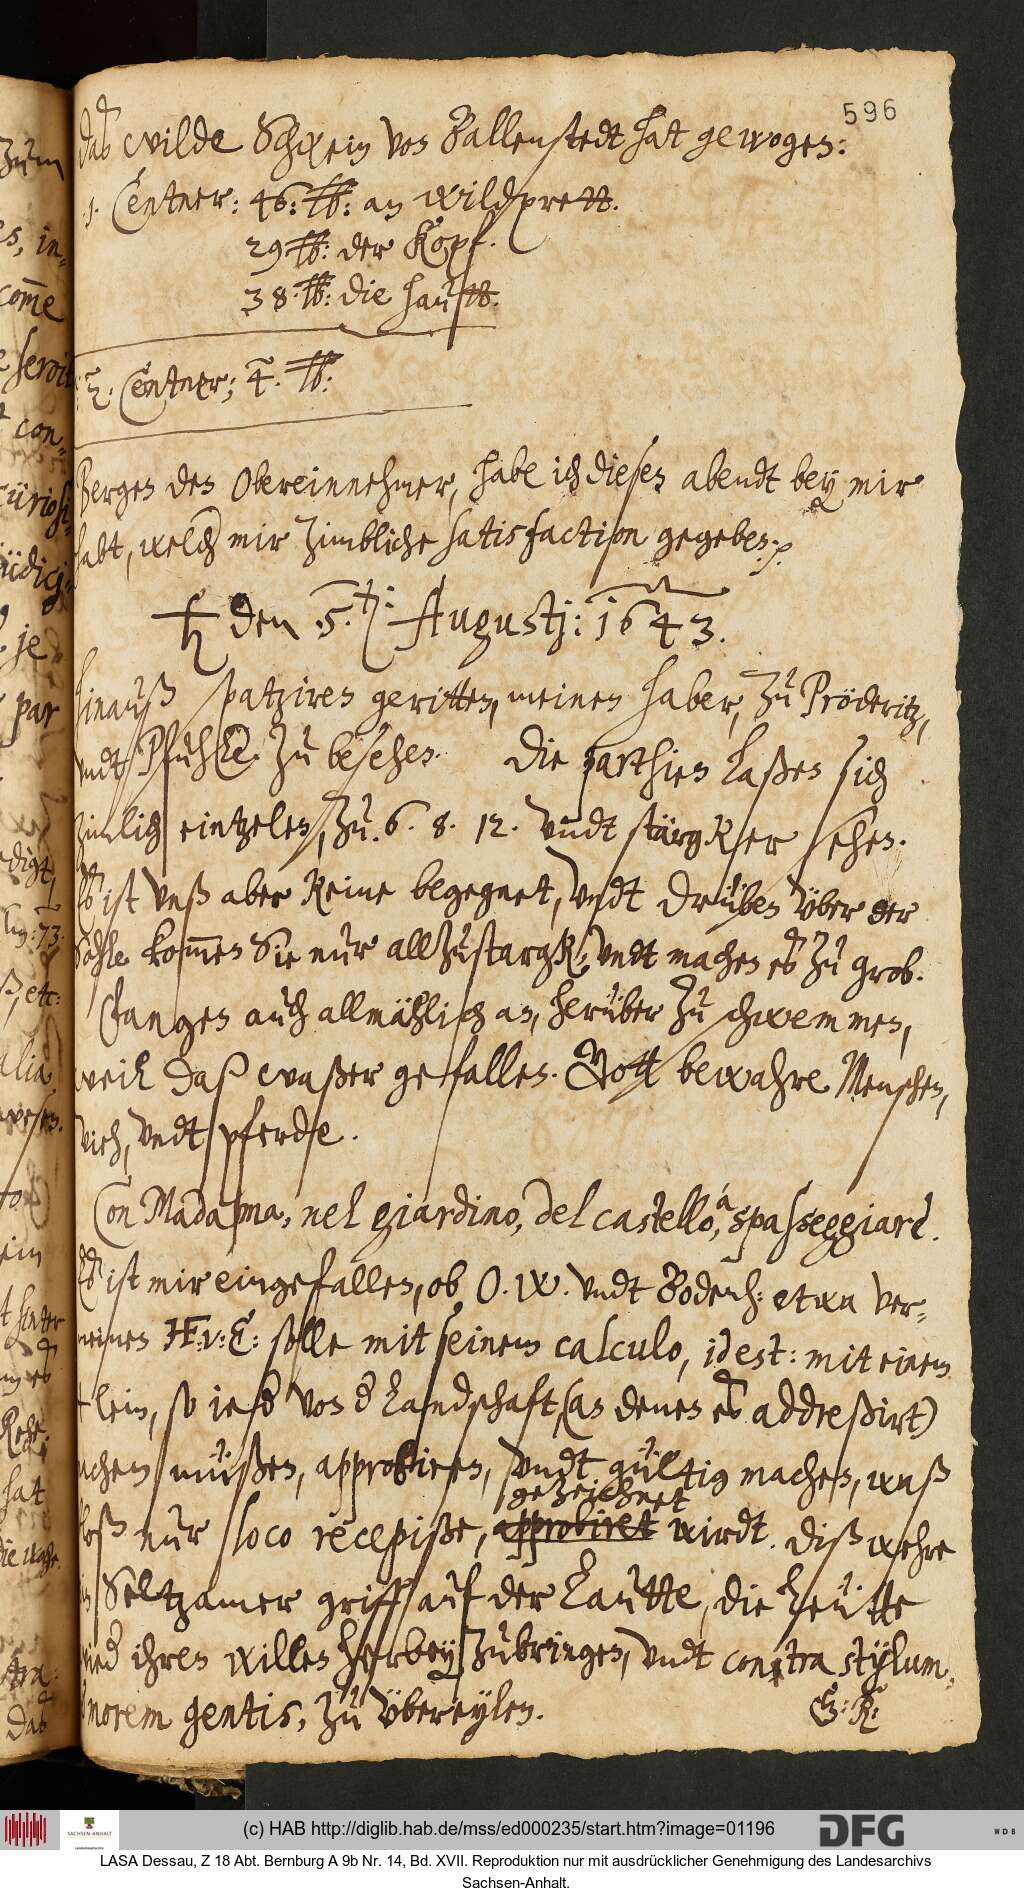 596
das wilde Schwein von Ballenstedt hat gewogen:
1. Centner: 46: ℔: an wildprett.
29 ℔: der Kopf.
38. ℔: die hautt.
2. Centner; 4. ℔:
Bergen den Obereinnehmer, habe ich diesen abendt bey mir
habt, welcher mir zimbliche satisfaction gegeben.
♄ den 5. Augustj: 1643.
hinauß spatziren geritten, meinen haber, zu Pröderitz,
undt Pfuhle zu besehen. Die parthien laßen sich
zimlich eintzelen, zu 6. 8. 12. undt stärgker sehen.
Es ist unß aber keine begegnet, undt drüben über der
Sahle kom̅en Sie nur allzustargk, undt machen es zu grob.
fangen auch allmählich an, herüber zu schwemmen,
weil daß waßer gefallen. Gott bewahre Menschen,
vieh, undt pferde.
Con Madama, nel giardino, del castello, à spasseggiare.
Es ist mir eingefallen, ob O. W. undt Bodenh: etwa ver-
meinen H: v: E: solle mit seinem calculo, id est: mit einem
lein, so ieß von der Landschaft, (an denen es addreßirt)
achen müßen, approbiren, undt gültig machen, waß
bloß nur loco recepiße, approbiret gezeichnet wirdt. Diß wehre
ein Seltzamer griff auf der Lautte, die Leütte
wied ihren willen herbey zubringen, undt contra stylum,
morem gentis, zu übereylen.
E: K:
(c) HAB http://diglib.hab.de/mss/ed000235/start.htm?image=01196
SACHSEN-ANHALT
DFG
WDB
LASA Dessau, Z 18 Abt. Bernburg A 9b Nr. 14, Bd. XVII. Reproduktion nur mit ausdrücklicher Genehmigung des Landesarchivs
Sachsen-Anhalt.